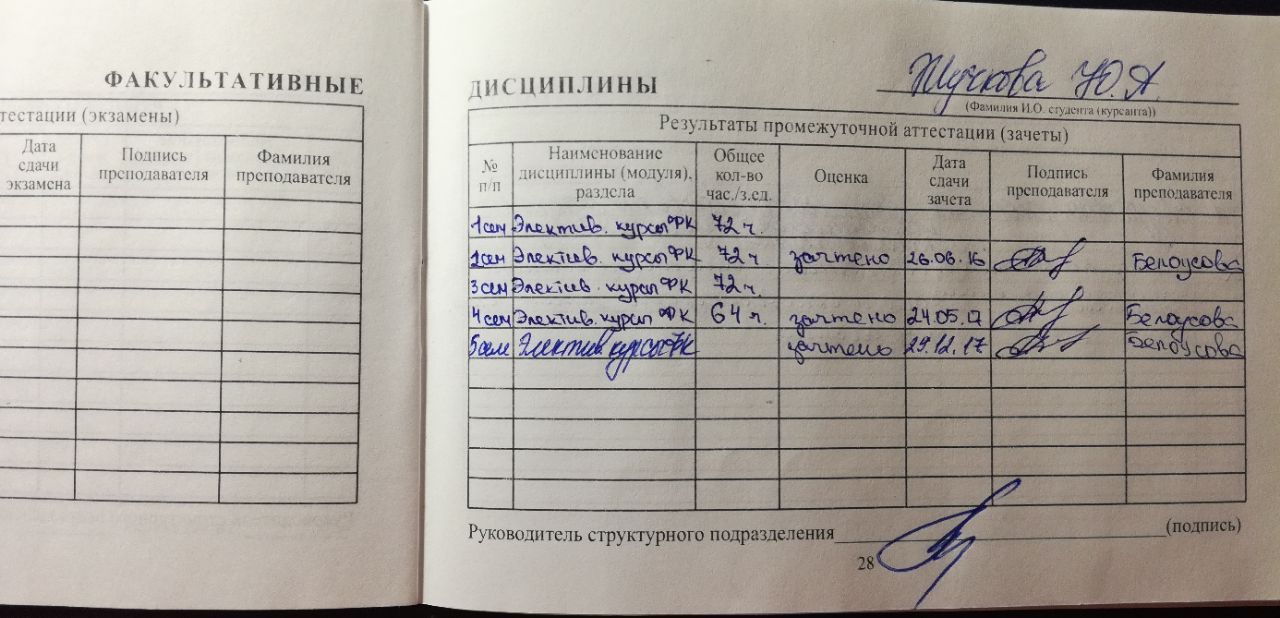 ФАКУЛЬТАТИВНЫЕ
тестации (экзамены)
Дата сдачи экзамена Подпись преподавателя Фамилия преподавателя
ДИСЦИПЛИНЫ Жучкова Ю.А.
(Фамилия И.О. студента (курсанта))
Результаты промежуточной аттестации (зачеты)
№ п/п Наименование дисциплины (модуля), раздела Общее кол-во час./з.ед. Оценка Дата сдачи зачета Подпись преподавателя Фамилия преподавателя
1 сем Электив. курсы ФК 72 ч.
2 сем Электив. курсы ФК 72 ч зачтено 26.06.16 Белоусова
3 сем Электив. курсы ФК 72 ч.
4 сем Электив. курсы ФК 64 ч. зачтено 24.05.17 Белоусова
5 сем Электив курсы ФК зачтено 29.12.17 Белоусова
Руководитель структурного подразделения (подпись)
28